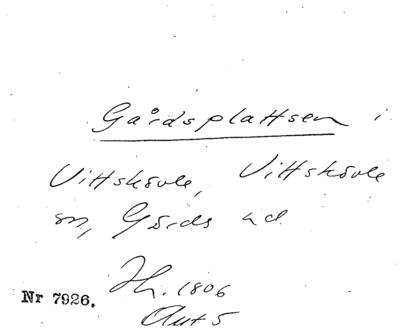 Gårdsplattsen i
Vittskövle, Vittskövle
sn, Gärds hd.
Nr 7926.
1806